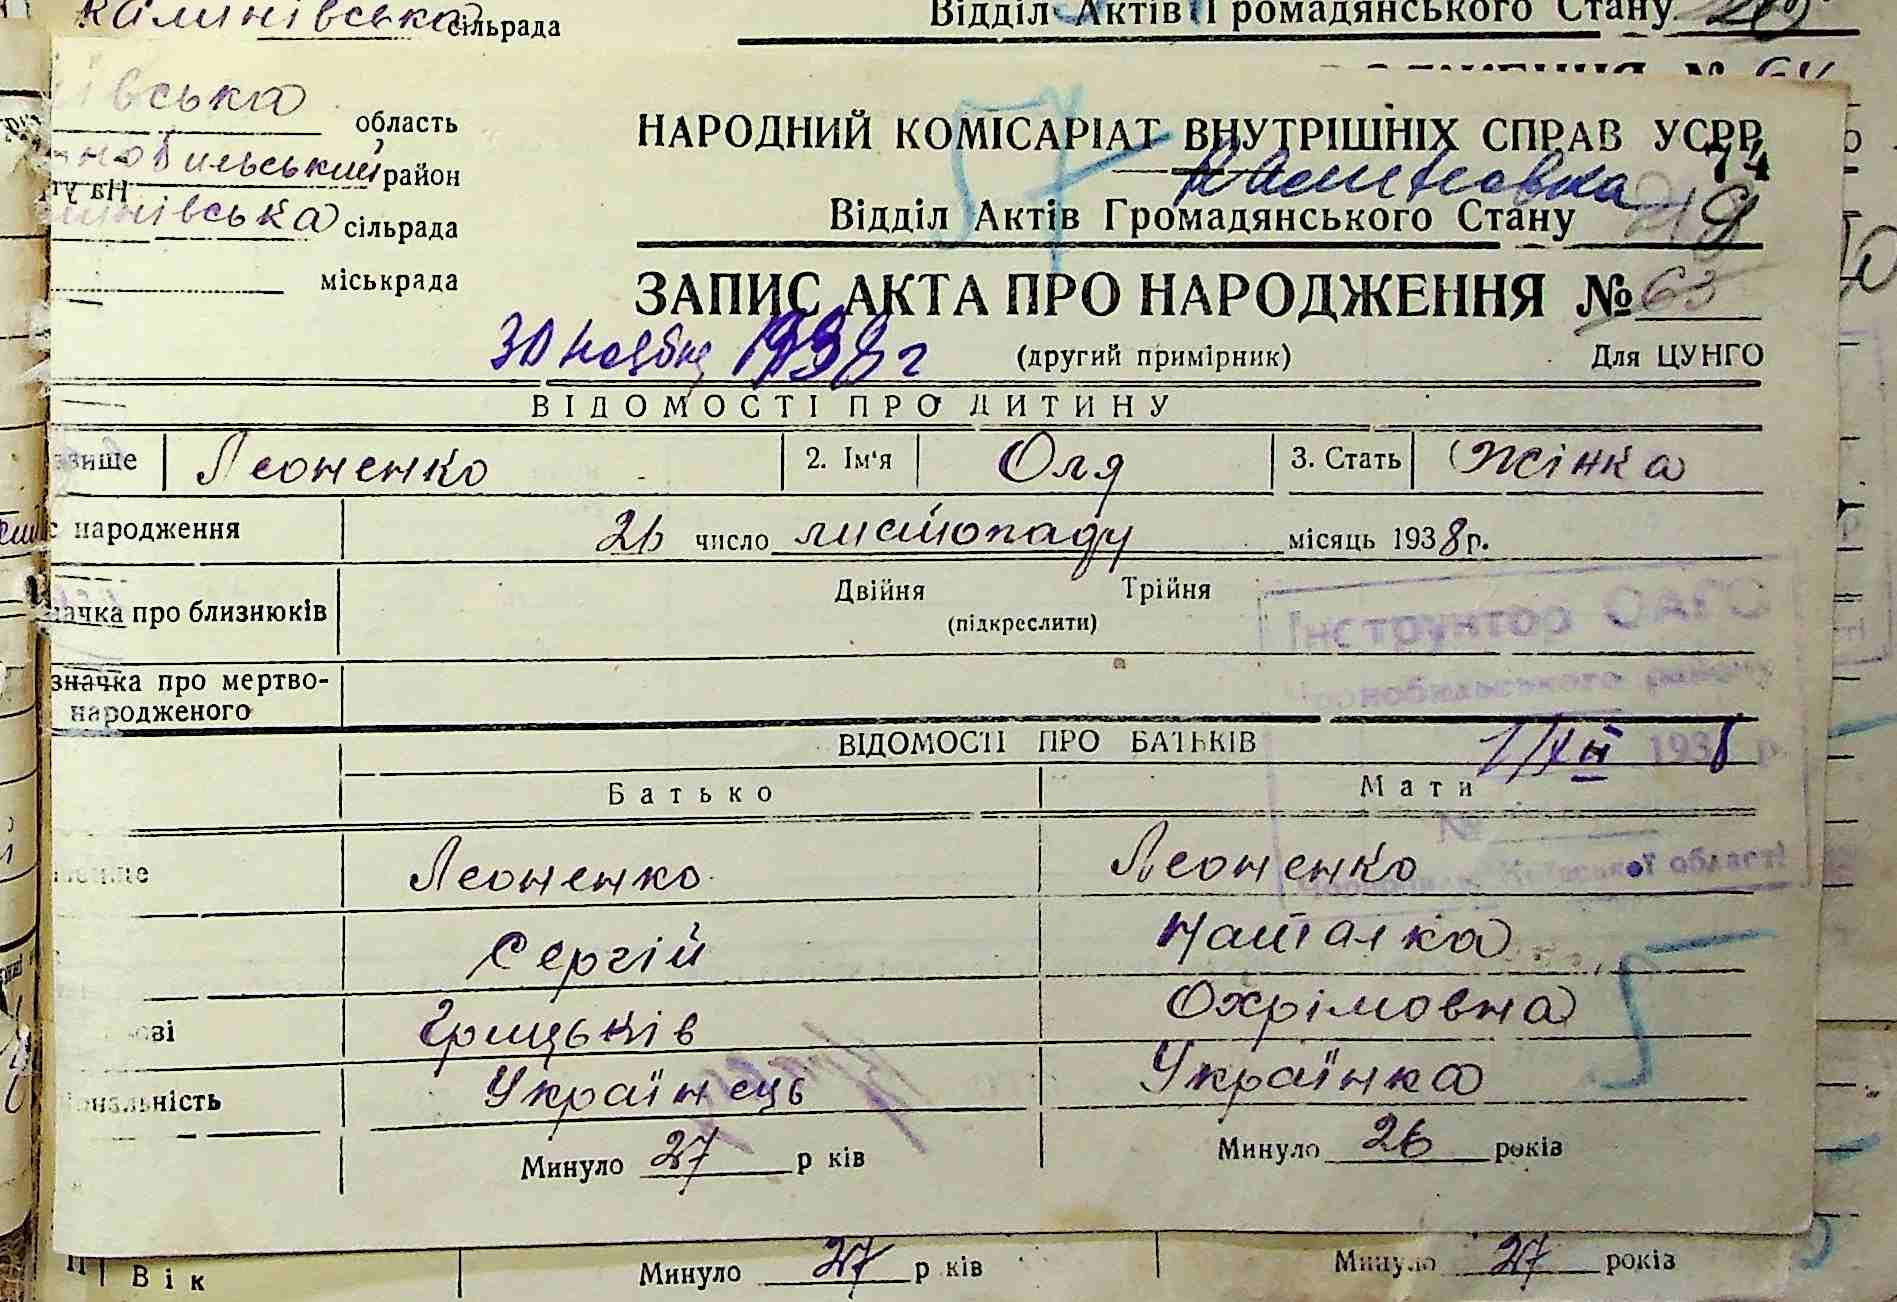 Калинівська сільрада
Відділ Актів Громадянського Стану
івська область
нобильський район
инівська сільрада
міськрада
НАРОДНИЙ КОМІСАРІАТ ВНУТРІШНІХ СПРАВ УСРР
57
74
Відділ Актів Громадянського Стану
ЗАПИС АКТА ПРО НАРОДЖЕННЯ № 63
30 1938 г (другий примірник) Для ЦУНГО
ВІДОМОСТІ ПРО ДИТИНУ
звище Леоненко 2. Ім'я Оля 3. Стать Жінка
с народження 26 число листопаду місяць 1938 р.
начка про близнюків Двійня Трійня
(підкреслити)
Інструктор ОАГС
значка про мертво-
народженого
Чорнобильського району
ВІДОМОСТІ ПРО БАТЬКІВ
1/XII 1938 р.
Батько Мати
№
Київської області
Леоненко Леоненко
Сергій Наталка
ові Грицьків Охрімовна
ональність Українець Українка
5
Минуло 27 р ків Минуло 26 років
Вік Минуло 27 р ків Минуло 27 років